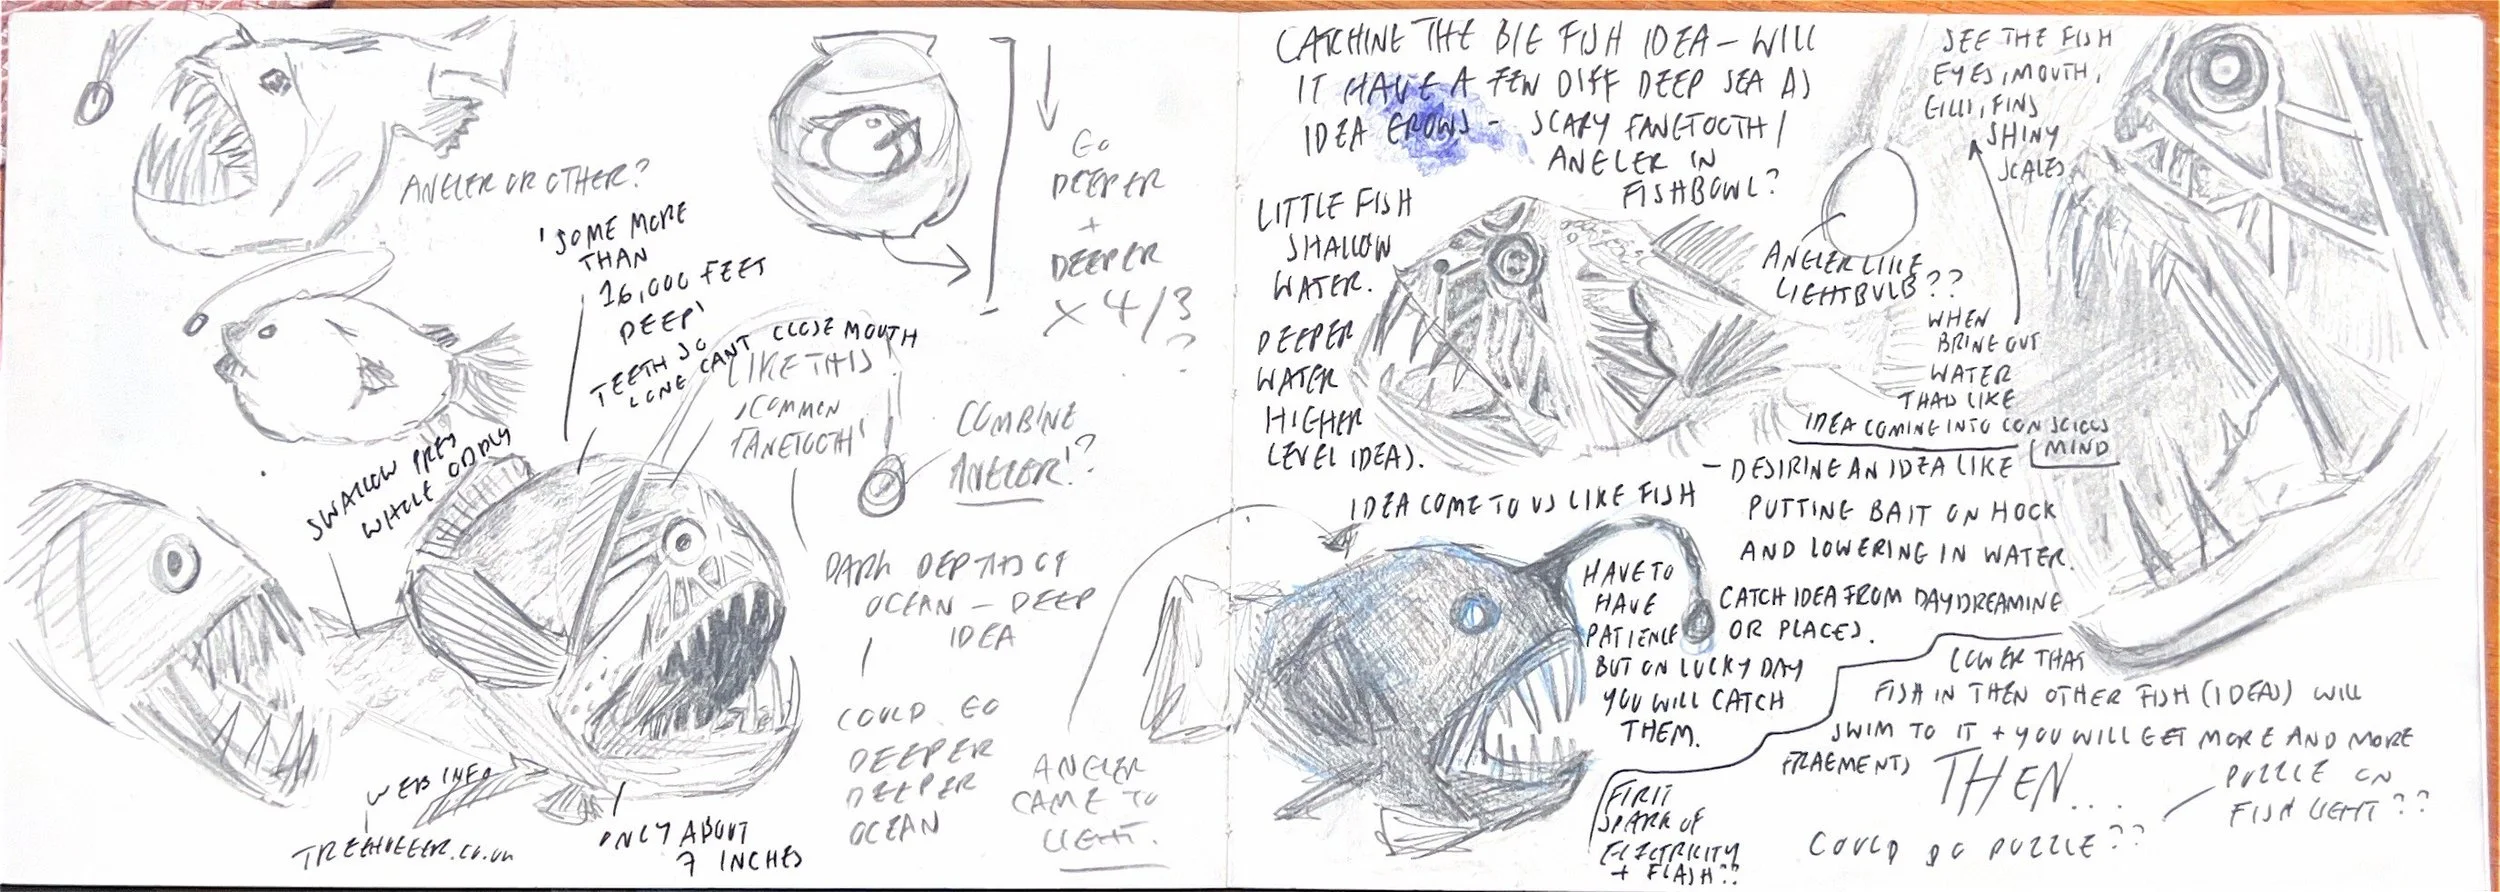 ANGLER OR OTHER?
'SOME MORE
THAN
16,000 FEET
DEEP'
TEETH SO
LONG CANT CLOSE MOUTH
LIKE THIS
'COMMON
FANGTOOTH'
SWALLOW PREY
WHOLE ODDLY
WEB INFO
TREEHUGGER.CO.UK
ONLY ABOUT
7 INCHES
GO
DEEPER
+
DEEPER
X 4/3
?
COMBINE
ANGLER!?
DARK DEPTHS OF
OCEAN - DEEP
IDEA
COULD GO
DEEPER
DEEPER
OCEAN
ANGLER
CAME TO
LIGHT.
CATCHING THE BIG FISH IDEA - WILL
IT HAVE A FEW DIFF DEEP SEA AS
IDEA GROWS - SCARY FANGTOOTH /
ANGLER IN
FISHBOWL?
LITTLE FISH
SHALLOW
WATER.
DEEPER
WATER
HIGHER
LEVEL IDEAS.
SEE THE FISH
EYES, MOUTH,
GILLS, FINS
SHINY
SCALES
ANGLER LIKE
LIGHTBULB??
WHEN
BRING OUT
WATER
THAS LIKE
IDEA COMING INTO CONSCIOUS
MIND
- DESIRING AN IDEA LIKE
PUTTING BAIT ON HOOK
AND LOWERING IN WATER.
IDEA COME TO US LIKE FISH
HAVE TO
HAVE
PATIENCE
BUT ON LUCKY DAY
YOU WILL CATCH
THEM.
CATCH IDEA FROM DAYDREAMING
OR PLACES.
LOWER THAT
FISH IN THEN OTHER FISH (IDEAS) WILL
SWIM TO IT + YOU WILL GET MORE AND MORE
FRAGMENTS
THEN...
FIRST
SPARK OF
ELECTRICITY
+ FLASH??
COULD DO PUZZLE??
PUZZLE ON
FISH LIGHT??